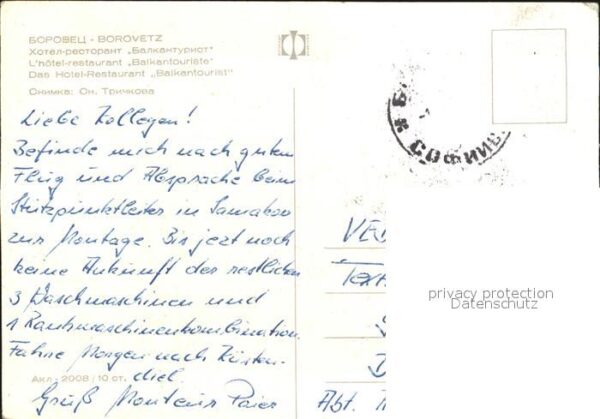 БОРОВЕЦ - BOROVETZ
Хотел-ресторант „Балкантурист"
L'hôtel-restaurant „Balkantouriste"
Das Hotel-Restaurant „Balkantourist"
Снимка: Сн. Тричкова
Liebe Kollegen!
Befinde mich nach guten
Flug und Absprache beim
Stützpunktleiter in Samakov
zur Montage. Bis jezt noch
keine Ankunft der restlichen
3 Waschmaschinen und
1 Rauhmaschinenkombination.
Fahre Morgen nach Küsten-
diel.
Акл. 2008 / 10 ст.
Gruß Monteur Paier
СОФИЯ
VE
Text
privacy protection
Datenschutz
D
Abt.